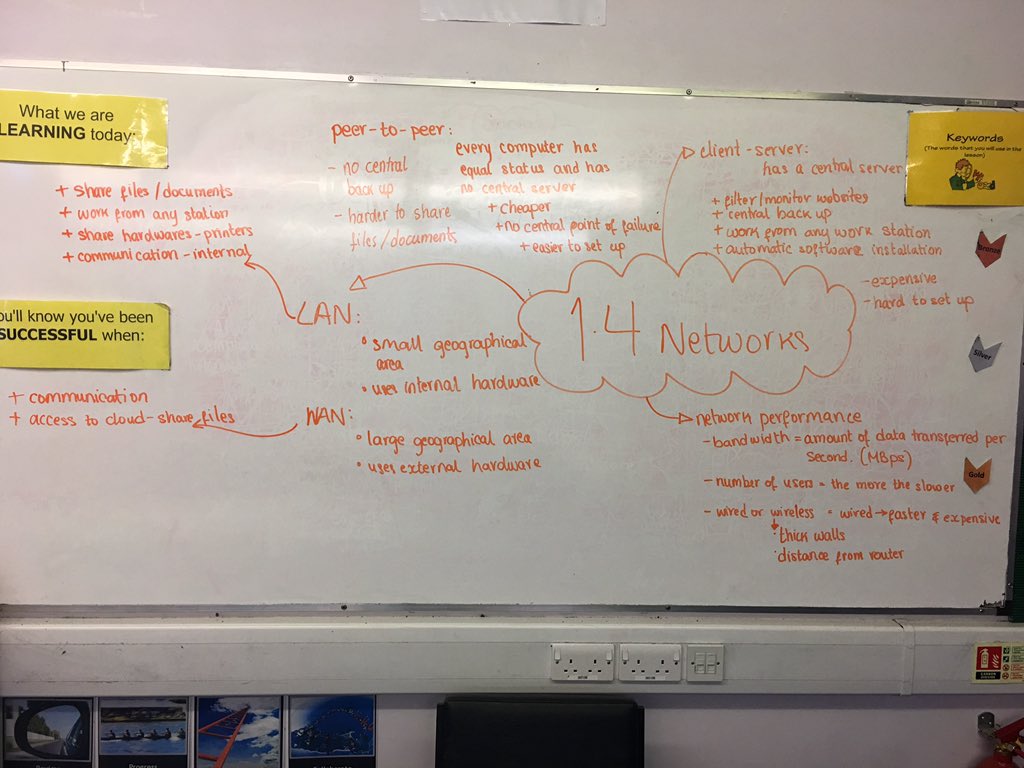 What we are
LEARNING today:
+ share files/documents
+ work from any station
+ share hardwares-printers
+ communication-internal
ou'll know you've been
SUCCESSFUL when:
+ communication
+ access to cloud-share files
peer-to-peer:
- no central
back up
- harder to share
files/documents
every computer has
equal status and has
no central server
+ cheaper
+no central point of failure
+ easier to set up
client-server:
has a central server
+ filter/monitor websites
+ central back up
+ work from any work station
+ automatic software installation
- expensive
- hard to set up
Keywords
(The words that you will use in the
lesson)
Bronze
Silver
Gold
1.4 Networks
LAN:
• small geographical
area
• uses internal hardware
WAN:
• large geographical area
• uses external hardware
network performance
- bandwidth = amount of data transferred per
second. (MBps)
- number of users = the more the slower
- wired or wireless = wired → faster & expensive
• thick walls
• distance from router
Progress